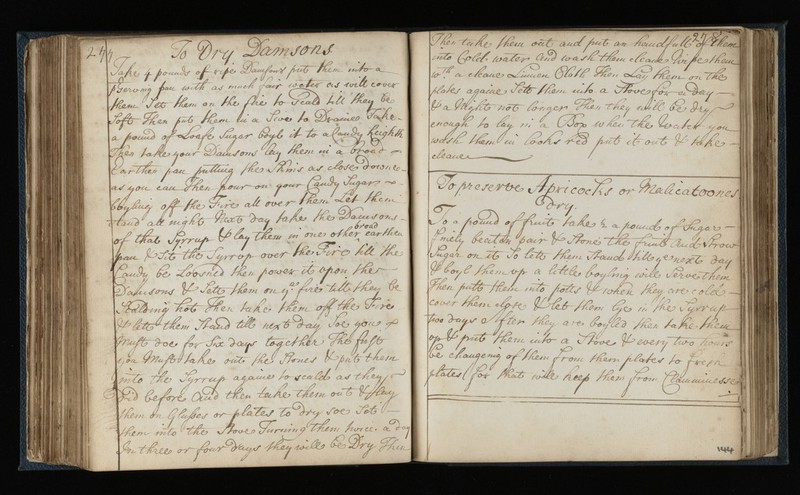 277
To Dry Damsons
Take 4 pounds of ripe Damsons put them into a
pserving pan with as much fair water as will cover
them Set them on the fire to Scald till they be
Soft Then put them in a Sive to Draine Take
a pound of Loafe Sugar boyl it to a Candy heighth
Then take your Damsons lay them in a broad
Earthen pan putting the Skins as close downe
as you can Then pour on your Candy Sugar
boyling off the Fire all over them Let them
Stand all night Next day take the Damsons
of that Syrrup & lay them in one other broad earthen
pan & Sett the Syrrup over the Fire till the
Candy be Loosned then power it upon the
Damsons & Sett them on ye fire till they be
Scalding hot Then take them off the Fire
& lett them Stand till next day Soe you
Must doe for Six days together The first
you Must take out the Stones & put them
into the Syrrup againe to scald as they
Did before And then take them out & Lay
them on Glasses or plates to dry Soe Sett
them into the Stove Turning them twice a day
In three or four days they will be Dry Then
278
Then take them out and put an handfull of them
into Cold water and wash them cleane Wipe them
wth a cleane Linnen Cloth Then Lay them on the
plates againe Sett them into a Stove for a Day
& a Night not longer Then they will be dry
enough to lay in a Box when the Water you
wash them in looks red put it out & take
cleane
To preserve Apricocks or Malicatoones
dry.
To a pound of fruit take a pound of Sugar
finely beaten pair & Stone the fruit And Strow
Sugar on it So lett them Stand till ye next day
& boyl them up a little boyling will Serve them
Then putt them into potts & when they are cold
cover them close & let them Lye in the Syrrup
two days After they are boyled then take them
up & putt them into a Stove & every two hours
be changeing of them from them plates to fresh
plates for that will keep them from Clamminesse
144